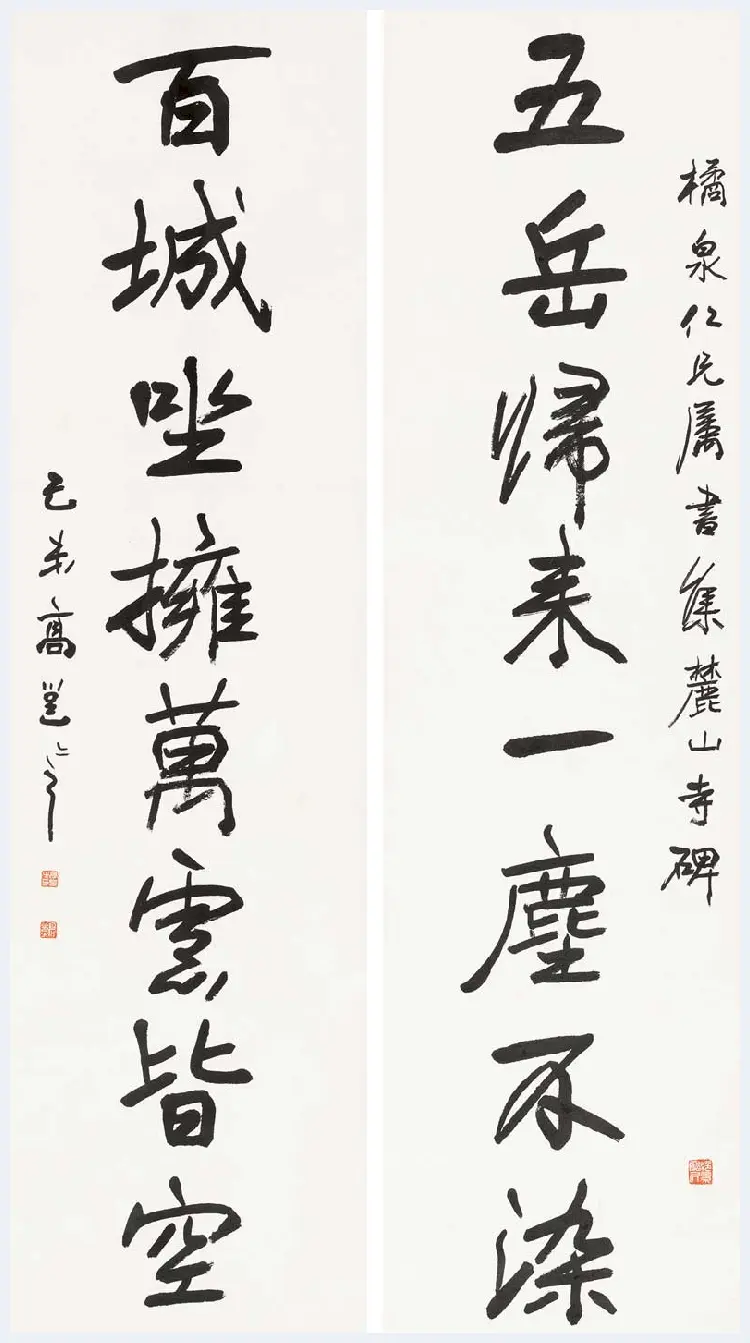 橘泉仁兄属書集麓山寺碑
五岳歸来一塵不染
百城坐擁萬慮皆空
己未高邕